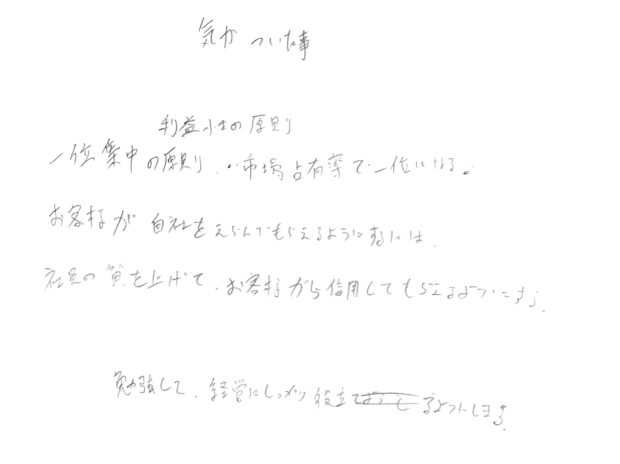 気がついた事
利益小さの原則
一位集中の原則.・市場占有率で一位になる。
お客様が自社をえらんでもらえるようにするには.
社員の質を上げて、お客様から信用してもらえるようにする.
勉強して、経営にしっかり役立てるようにする。